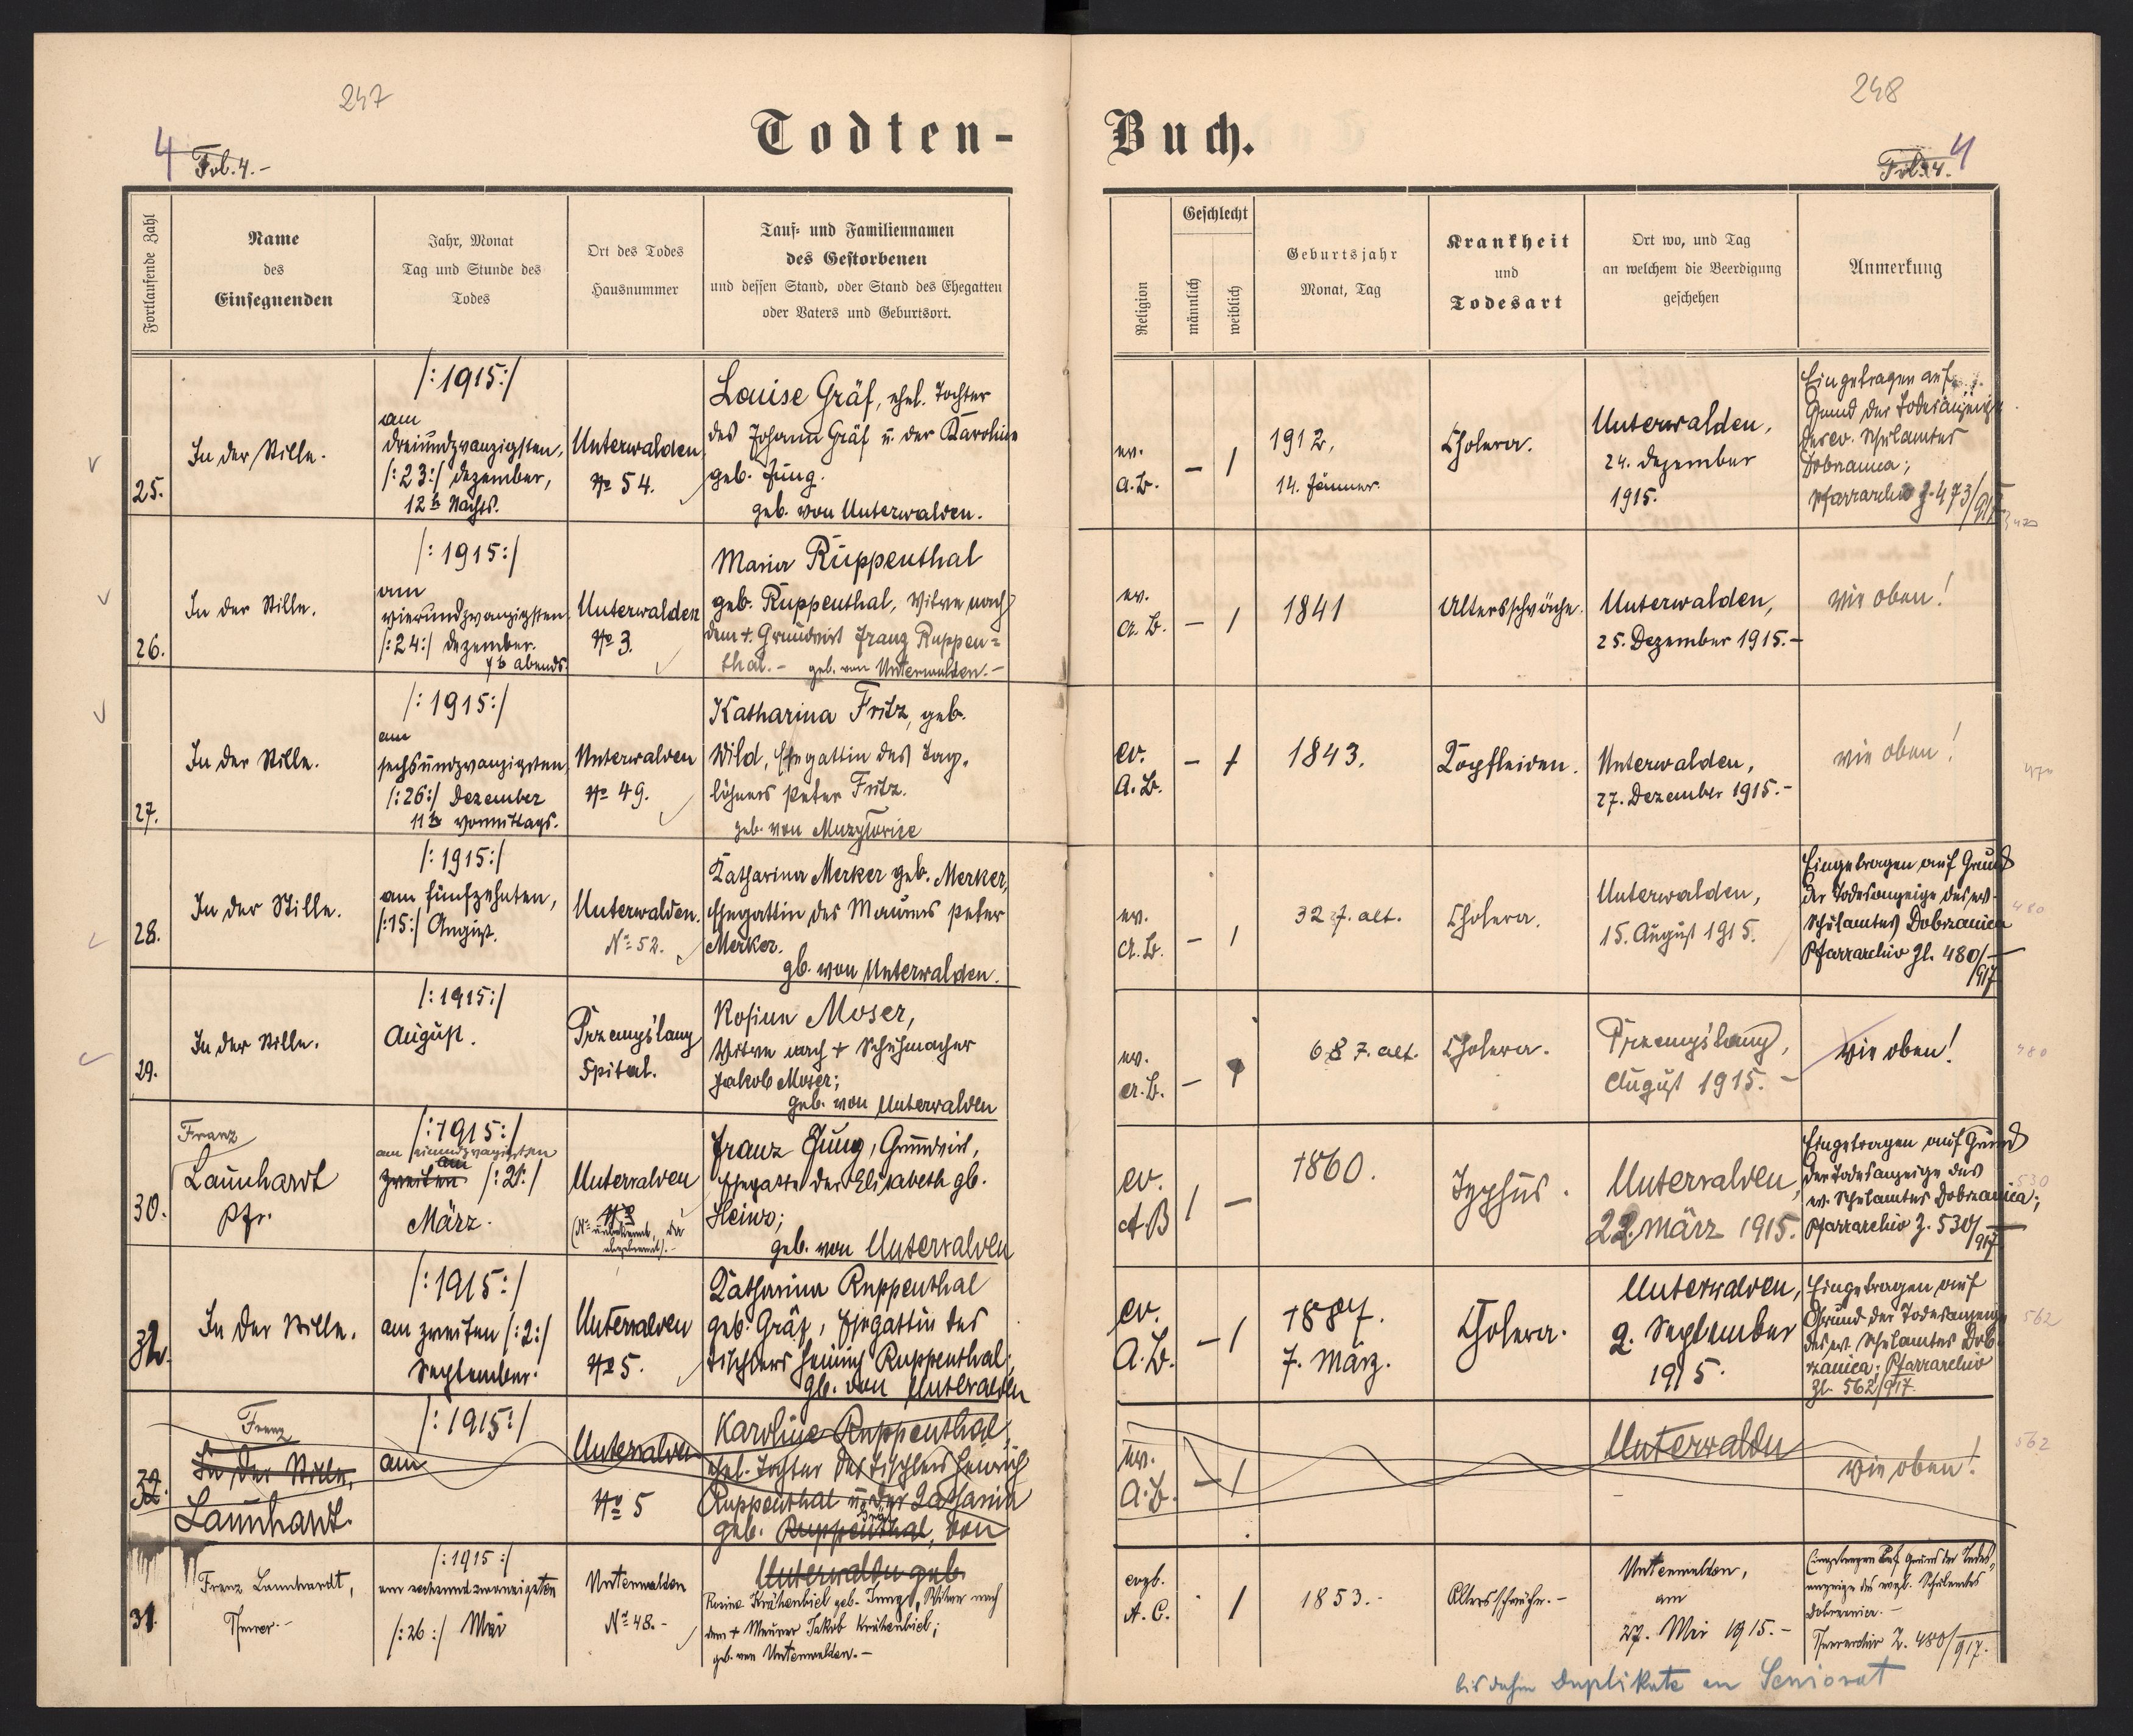 247
248
Todten-
Buch.
4 Fol. 4.-
Fol. 4. 4
Fortlaufende Zahl
Name
des
Einsegnenden
Jahr, Monat
Tag und Stunde des
Todes
Ort des Todes
Hausnummer
Tauf- und Familiennamen
des Gestorbenen
und dessen Stand, oder Stand des Ehegatten
oder Vaters und Geburtsort.
Religion
Geschlecht
männlich
weiblich
Geburtsjahr
Monat, Tag
Krankheit
und
Todesart
Ort wo, und Tag
an welchem die Beerdigung
geschehen
Anmerkung
25.
In der Stille.
/:1915:/
am
dreiundzwanzigsten,
/:23:/ Dezember,
12 h Nachts.
Unterwalden
No 54.
Louise Gräf, ehel. Tochter
des Johann Gräf u. der Karoline
geb. Jung.
geb. von Unterwalden.
ev.
A.B.
– 1
1912,
14. Jänner.
Cholera.
Unterwalden,
24. Dezember
1915.
Eingetragen auf
Grund der Todesanzeige
des ev. Schulamtes
Dobzanica;
Pfarrarchiv Z. 473/917
26.
In der Stille.
/:1915:/
am
vierundzwanzigsten
/:24:/ Dezember.
7 h abends.
Unterwalden
No 3.
Maria Ruppenthal
geb. Ruppenthal, Witwe nach
dem + Grundwirt Franz Ruppen-
thal.- geb. von Unterwalden.-
ev.
A.B.
– 1
1841
Altersschwäche.
Unterwalden,
25. Dezember 1915.-
wie oben!
27.
In der Stille.
/:1915:/
am
sechsundzwanzigsten,
/:26:/ Dezember
11 h vormittags.
Unterwalden
No 49.
Katharina Fritz, geb.
Wild, Ehegattin des Tag-
löhners Peter Fritz.
geb. von Muzylowice
ev.
A.B.
– 1
1843.
Kopfleiden.
Unterwalden,
27. Dezember 1915.-
wie oben!
28.
In der Stille.
/:1915:/
am fünfzehnten,
/:15:/ August.
Unterwalden.
No 52.
Katharina Merker geb. Merker,
Ehegattin des Maurers Peter
Merker.
gb. von Unterwalden.
ev.
A.B.
– 1
32 J. alt.
Cholera.
Unterwalden,
15. August 1915.
Eingetragen auf Grund
der Todesanzeige des ev.
Schulamtes Dobzanica
Pfarrarchiv Zl. 480/917
480
29.
In der Stille.
/:1915:/
August.
Przemyslany
Spital.
Rosina Moser,
Witwe nach + Schuhmacher
Jakob Moser;
geb. von Unterwalden
ev.
A.B.
– 1
68 J. alt.
Cholera.
Przemyslany,
August 1915.-
wie oben!
480
30.
Franz
Launhardt
Pfr.
/:1915:/
am einundzwanzigsten
am
zweiten /:21:/
März.
Unterwalden
(No unbekannt, da
abgebrannt).-
Franz Jung, Grundwirt,
Ehegatte der Elisabeth gb.
Heinz;
geb. von Unterwalden
ev.
A.B
1 –
1860.
Typhus.
Unterwalden,
22. März 1915.
Eingetragen auf Grund
der Todesanzeige des
ev. Schulamtes Dobzanica;
Pfarrarchiv Z. 530/917
530
In der Stille.
/:1915:/
am zweiten /:2:/
September.
Unterwalden
No 5.
Katharina Ruppenthal
geb. Gräf, Ehegattin des
Tischlers Heinrich Ruppenthal;
gb. von Unterwalden
ev.
A.B.
– 1
1887.
7. März.
Cholera.
Unterwalden,
2. September
1915.
Eingetragen auf
Grund der Todesanzeige
des ev. Schulamtes Dob-
zanica; Pfarrarchiv
Zl. 562/917.
562
32.
Franz
In der Stille,
Launhardt
/:1915:/
am
Unterwalden
No 5
Karoline Ruppenthal,
ehel. Tochter des Tischlers Heinrich
Ruppenthal u. der Katharina
geb. Ruppenthal, von
Unterwalden geb.
ev.
A.B.
– 1
Unterwalden
wie oben!
562
31.
Franz Launhardt,
Pfarrer.-
/:1915:/
am sechsundzwanzigsten
/:26:/ Mai
Unterwalden
No 48.-
Rosina Krähenbiel geb. Jung, Witwe nach
dem + Maurer Jakob Krähenbiel;
geb. von Unterwalden.-
evgl.
A.C.
1
1853.-
Altersschwäche.-
Unterwalden,
am
27. Mai 1915.-
Eingetragen auf Grund der Todes-
anzeige des evgl. Schulamtes
Dobzanica.-
Pfarrarchiv Z. 480/917.
bis dahin Duplikate an Seniorat